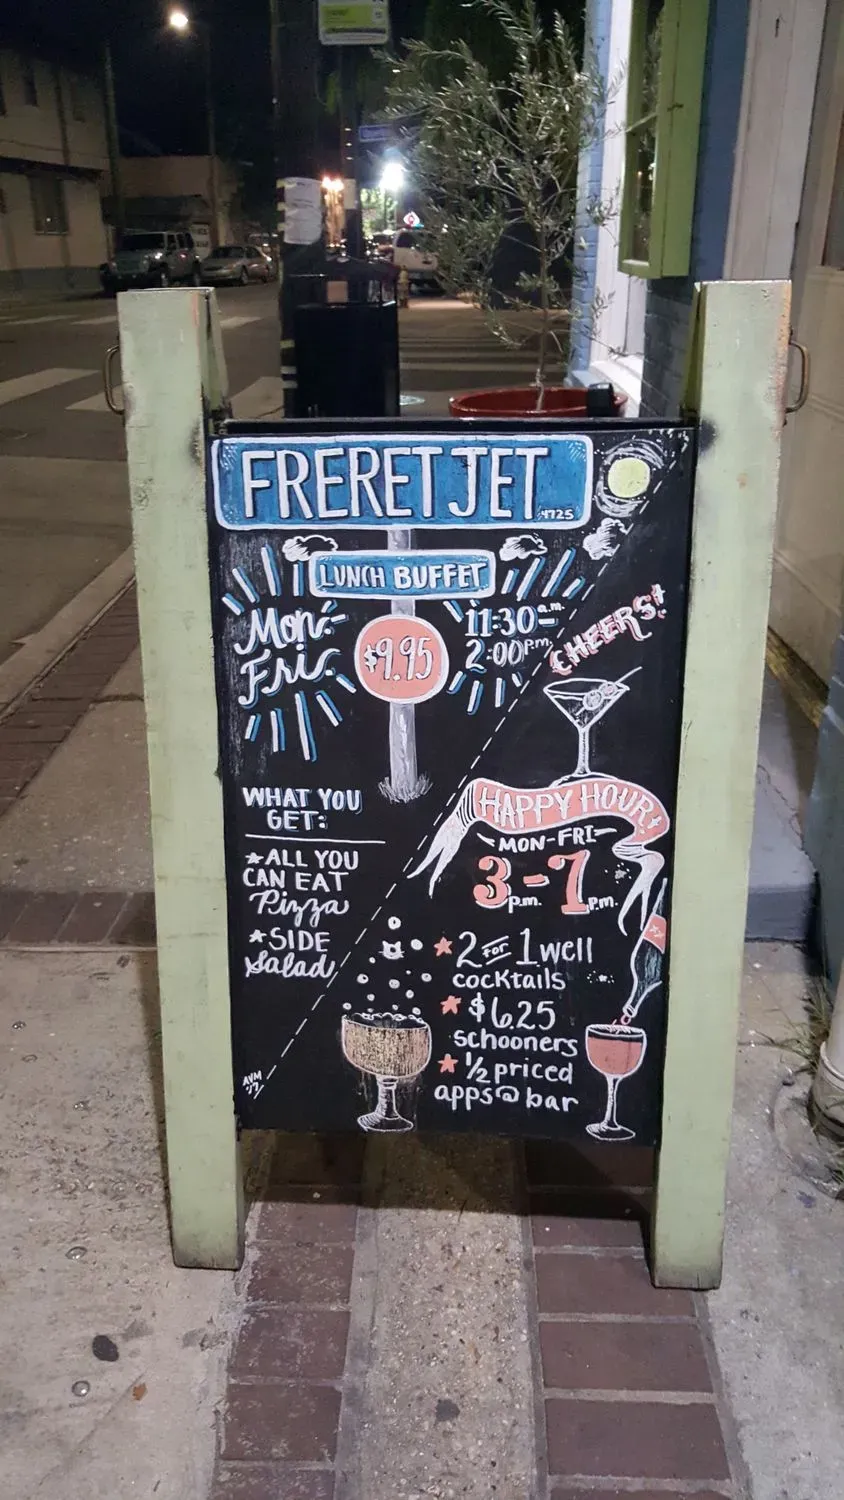 FRERET JET
4725
LUNCH BUFFET
Mon.-
Fri.
$9.95
11:30 a.m.-
2:00 p.m.
WHAT YOU
GET:
★ALL YOU
CAN EAT
Pizza
★SIDE
Salad
AVM
CHEERS!
HAPPY HOUR!
-MON-FRI-
3 p.m. - 7 p.m.
★ 2 for 1 well
cocktails
★ $6.25
schooners
★ 1/2 priced
apps @ bar